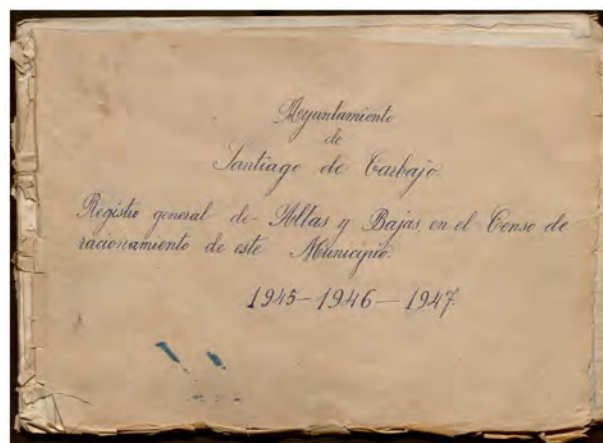 Ayuntamiento
de
Santiago de Carbajo.
Registro general de Altas y Bajas, en el Censo de
racionamiento de este Municipio.
1945-1946-1947.